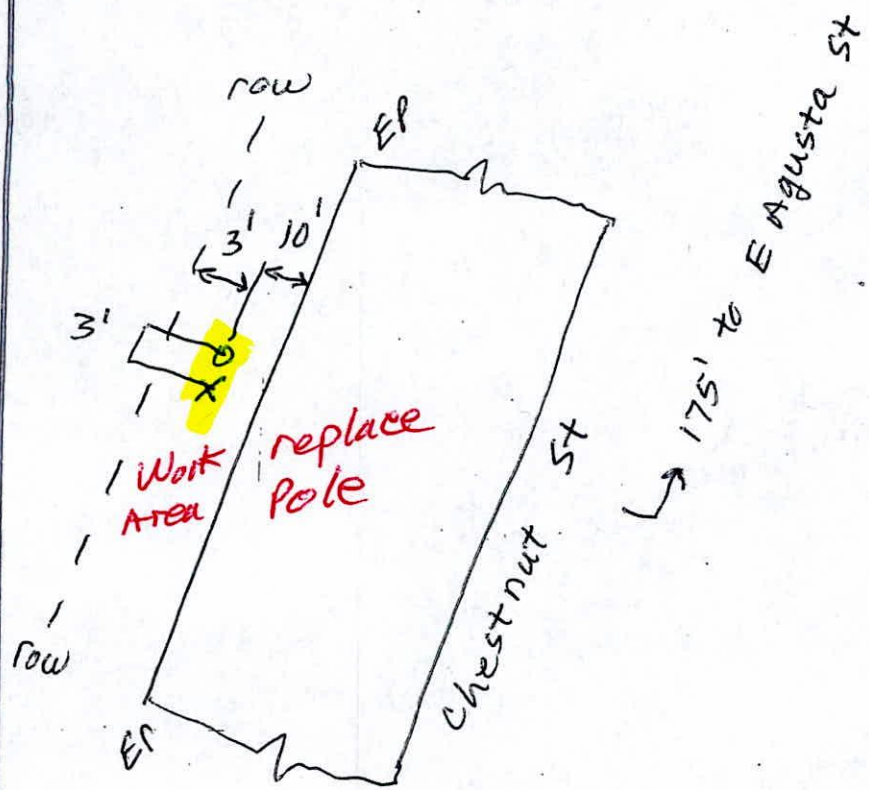 row
EP
3' 10'
3'
Work
Area
replace
Pole
row
EP
Chestnut St
↳ 175' to E Agusta St